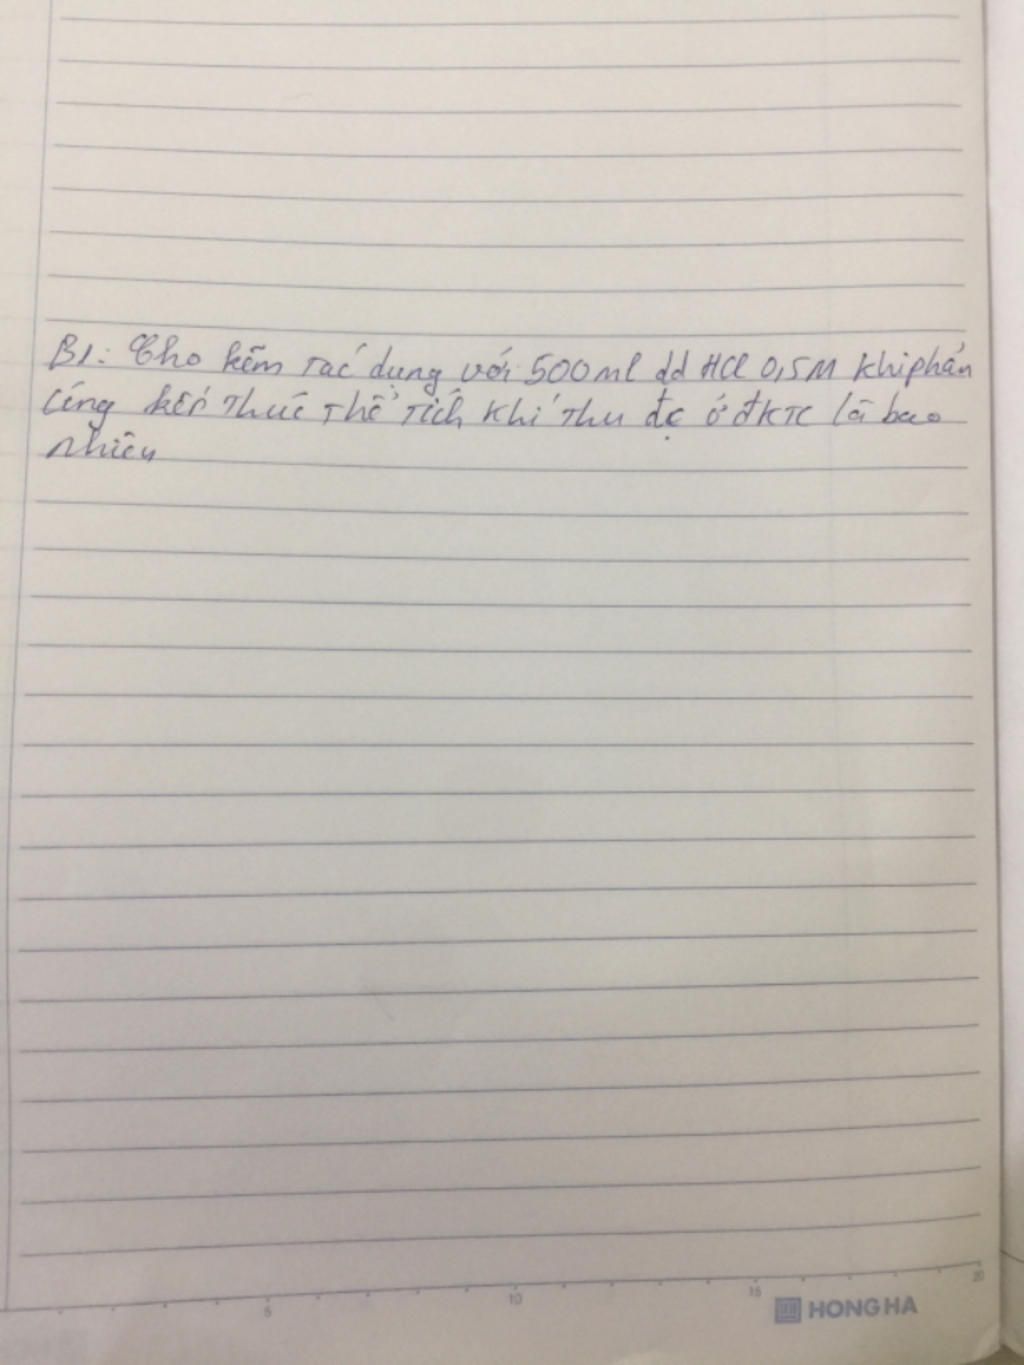 B1: Cho kẽm tác dụng với 500ml dd HCl 0,5M khi phản
ứng kết thúc thể tích khí thu đc ở đktc là bao
nhiêu
5 10 15 20
HONG HA